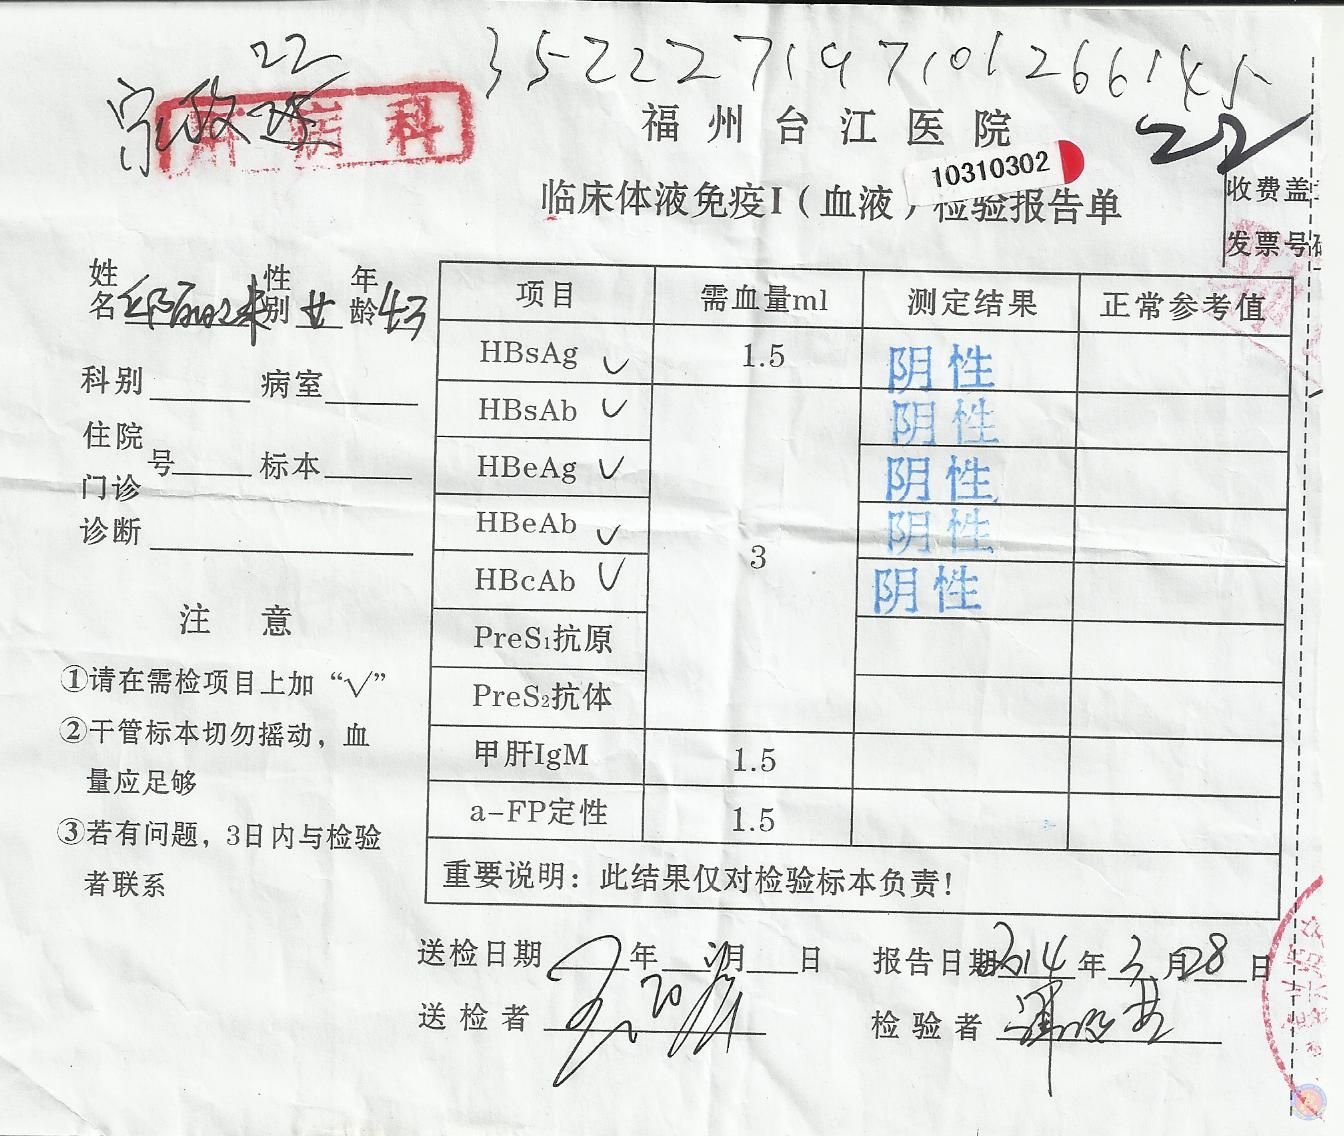 22
352227197101266145
肝病科
福州台江医院
22
10310302
临床体液免疫I（血液）检验报告单
收费盖
发票号码
姓名 性别 女 年龄 43
科别 病室
住院
门诊
号 标本
诊断
注 意
①请在需检项目上加“√”
②干管标本切勿摇动，血
量应足够
③若有问题，3日内与检验
者联系
项目 需血量ml 测定结果 正常参考值
HBsAg √ 1.5 阴性
HBsAb √ 阴性
HBeAg √ 阴性
HBeAb √ 阴性
3
HBcAb √ 阴性
PreS₁抗原
PreS₂抗体
甲肝IgM 1.5
a-FP定性 1.5
重要说明：此结果仅对检验标本负责！
送检日期 年 月 日 报告日期 2014 年 3 月 28 日
送检者 检验者